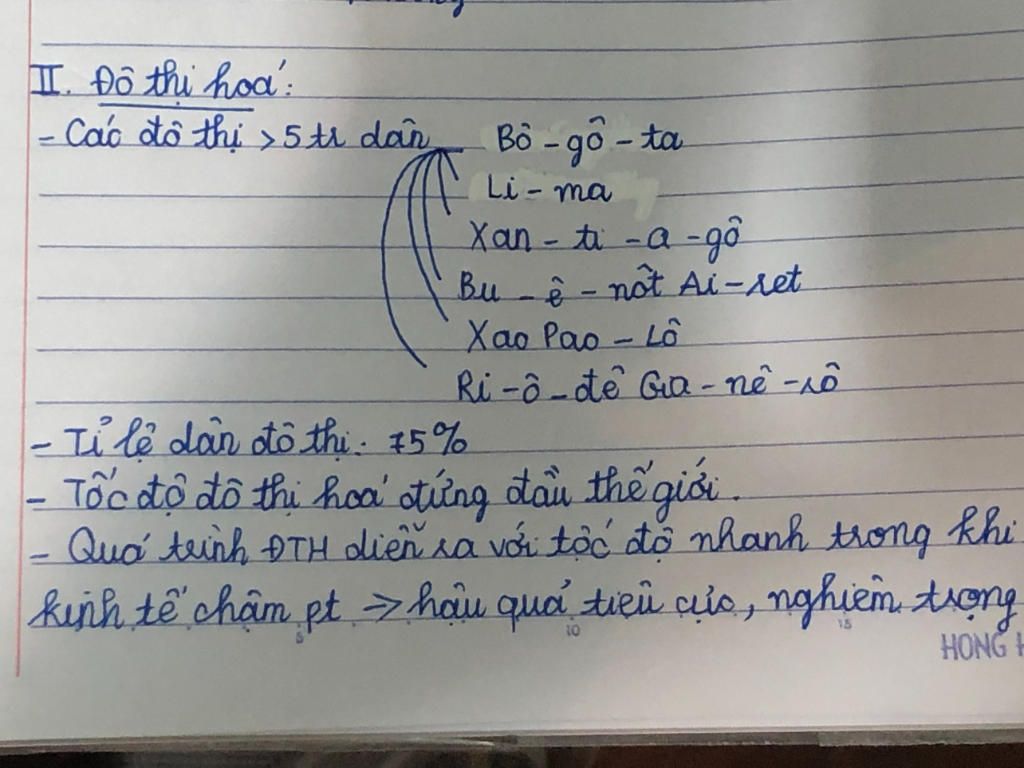 II. Đô thị hoá:
- Các đô thị > 5 tr dân Bô - gô - ta
Li - ma
Xan - ti - a - gô
Bu - ê - nôt Ai - ret
Xao Pao - Lô
Ri - ô - đề Gia - nê - rô
- Tỉ lệ dân đô thị: 75%
- Tốc độ đô thị hoá đứng đầu thế giới.
- Quá trình ĐTH diễn ra với tốc độ nhanh trong khi
kinh tế chậm pt => hậu quả tiêu cực, nghiêm trọng
5 10 15
HONG H